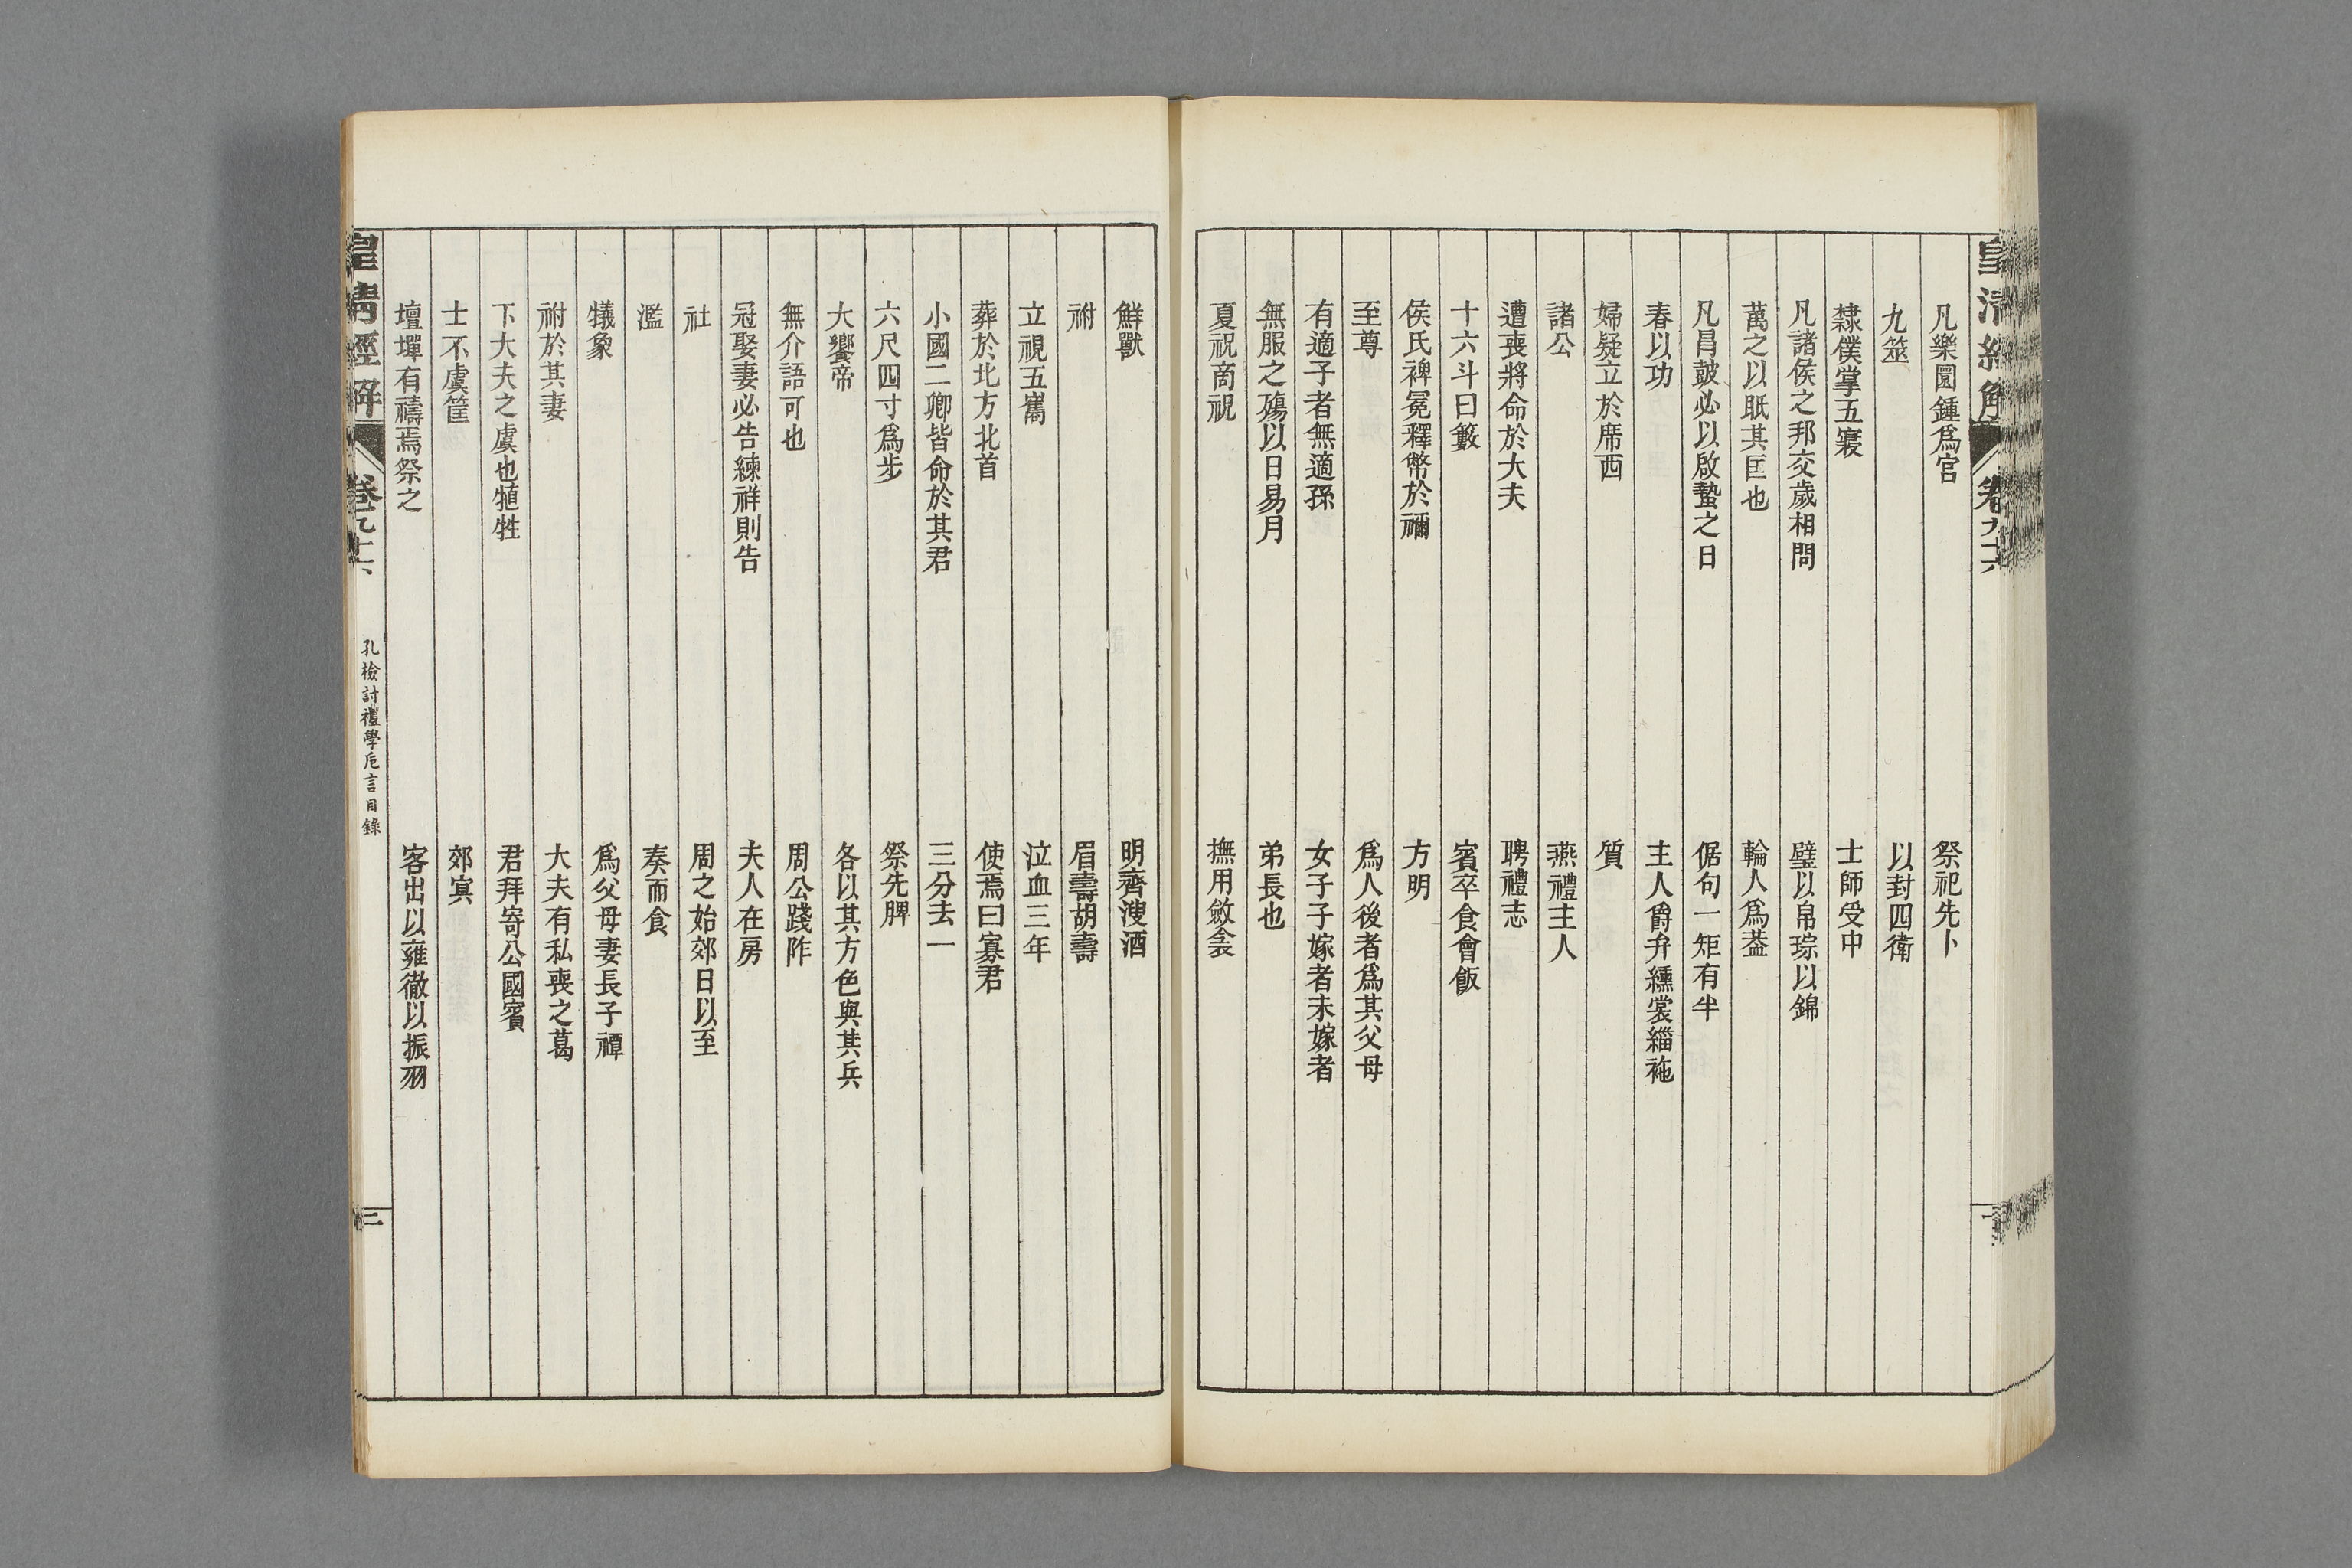 凡樂圜鍾爲宮　祭祀先卜
九簭　以封四衛
隸僕掌五寢　士師受中
凡諸侯之邦交歲相問　璧以帛琮以錦
萬之以眡其匡也　輪人爲葢
凡冐鼓必以啟蟄之日　倨句一矩有半
春以功　主人爵弁纁裳緇袘
婦疑立於席西　質
諸公　燕禮主人
遭喪將命於大夫　聘禮志
十六斗曰籔　賓卒食會飯
侯氏裨冕釋幣於禰　方明
至尊　爲人後者爲其父母
有適子者無適孫　女子子嫁者未嫁者
無服之殤以日易月　弟長也
夏祝商祝　撫用斂衾
鮮獸　明齊溲酒
祔　眉壽胡壽
立視五巂　泣血三年
葬於北方北首　使焉曰寡君
小國二卿皆命於其君　三分去一
六尺四寸爲步　祭先脾
大饗帝　各以其方色與其兵
無介語可也　周公踐阼
冠娶妻必告練祥則告　夫人在房
社　周之始郊日以至
濫　奏而食
犧象　爲父母妻長子禫
祔於其妻　大夫有私喪之葛
下大夫之虞也犆牲　君拜寄公國賓
士不虞筐　郊寘
壇墠有禱焉祭之　客出以雍徹以振羽
皇清經解　卷九十二　孔檢討禮學卮言目錄　二